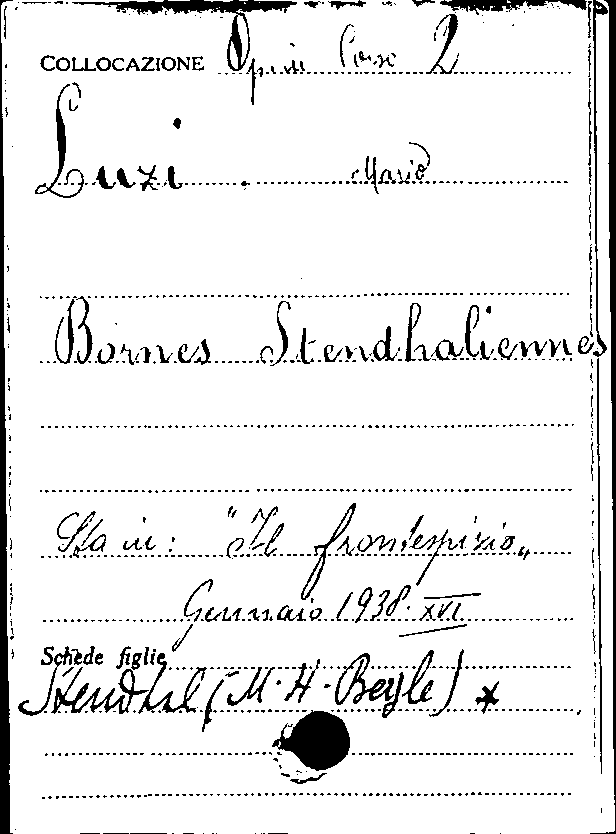 COLLOCAZIONE Opusc Corso 2
Luzi. Mario
Bornes Stendhaliennes
Sta in: "Il frontespizio„
Gennaio 1938. XVI
Schede figlie
Stendhal (M. H. Beyle) *